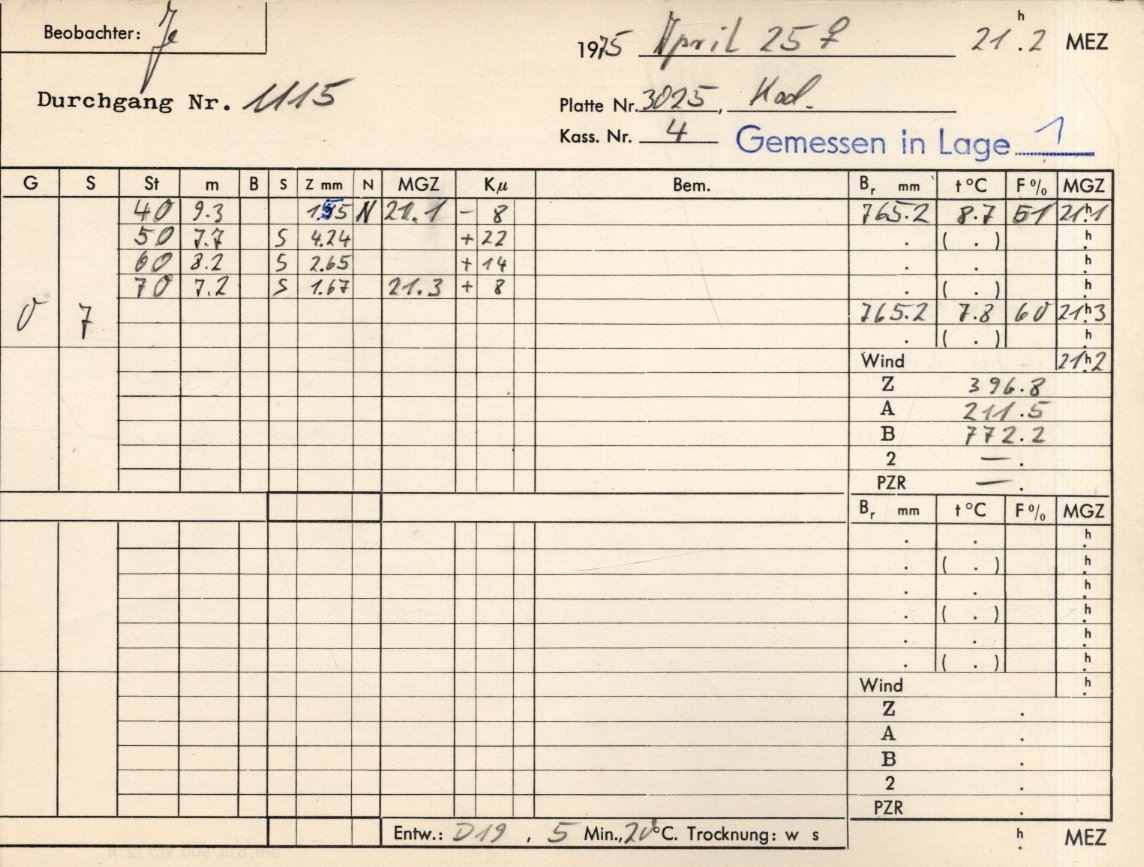 Beobachter: Je
1975 April 25 21h.2 MEZ
Durchgang Nr. 1115
Platte Nr. 3025, Kod.
Kass. Nr. 4 Gemessen in Lage 1
G S St m B S Z mm N MGZ Kμ Bem. Br mm t °C F % MGZ
40 9.3 1.55 N 21.1 - 8 765.2 8.7 51 21h.1
50 7.7 S 4.24 + 22 . ( . ) h.
60 8.2 S 2.65 + 14 . . h.
70 7.2 S 1.67 21.3 + 8 . ( . ) h.
0 7 765.2 7.8 60 21h.3
. ( . ) h.
Wind 21h.2
Z 396.8
A 211.5
B 772.2
2 — .
PZR — .
Br mm t °C F % MGZ
. . h.
. ( . ) h.
. . h.
. ( . ) h.
. . h.
. ( . ) h.
Wind h.
Z .
A .
B .
2 .
PZR .
Entw.: D19 . 5 Min., 20 °C. Trocknung: w s h. MEZ